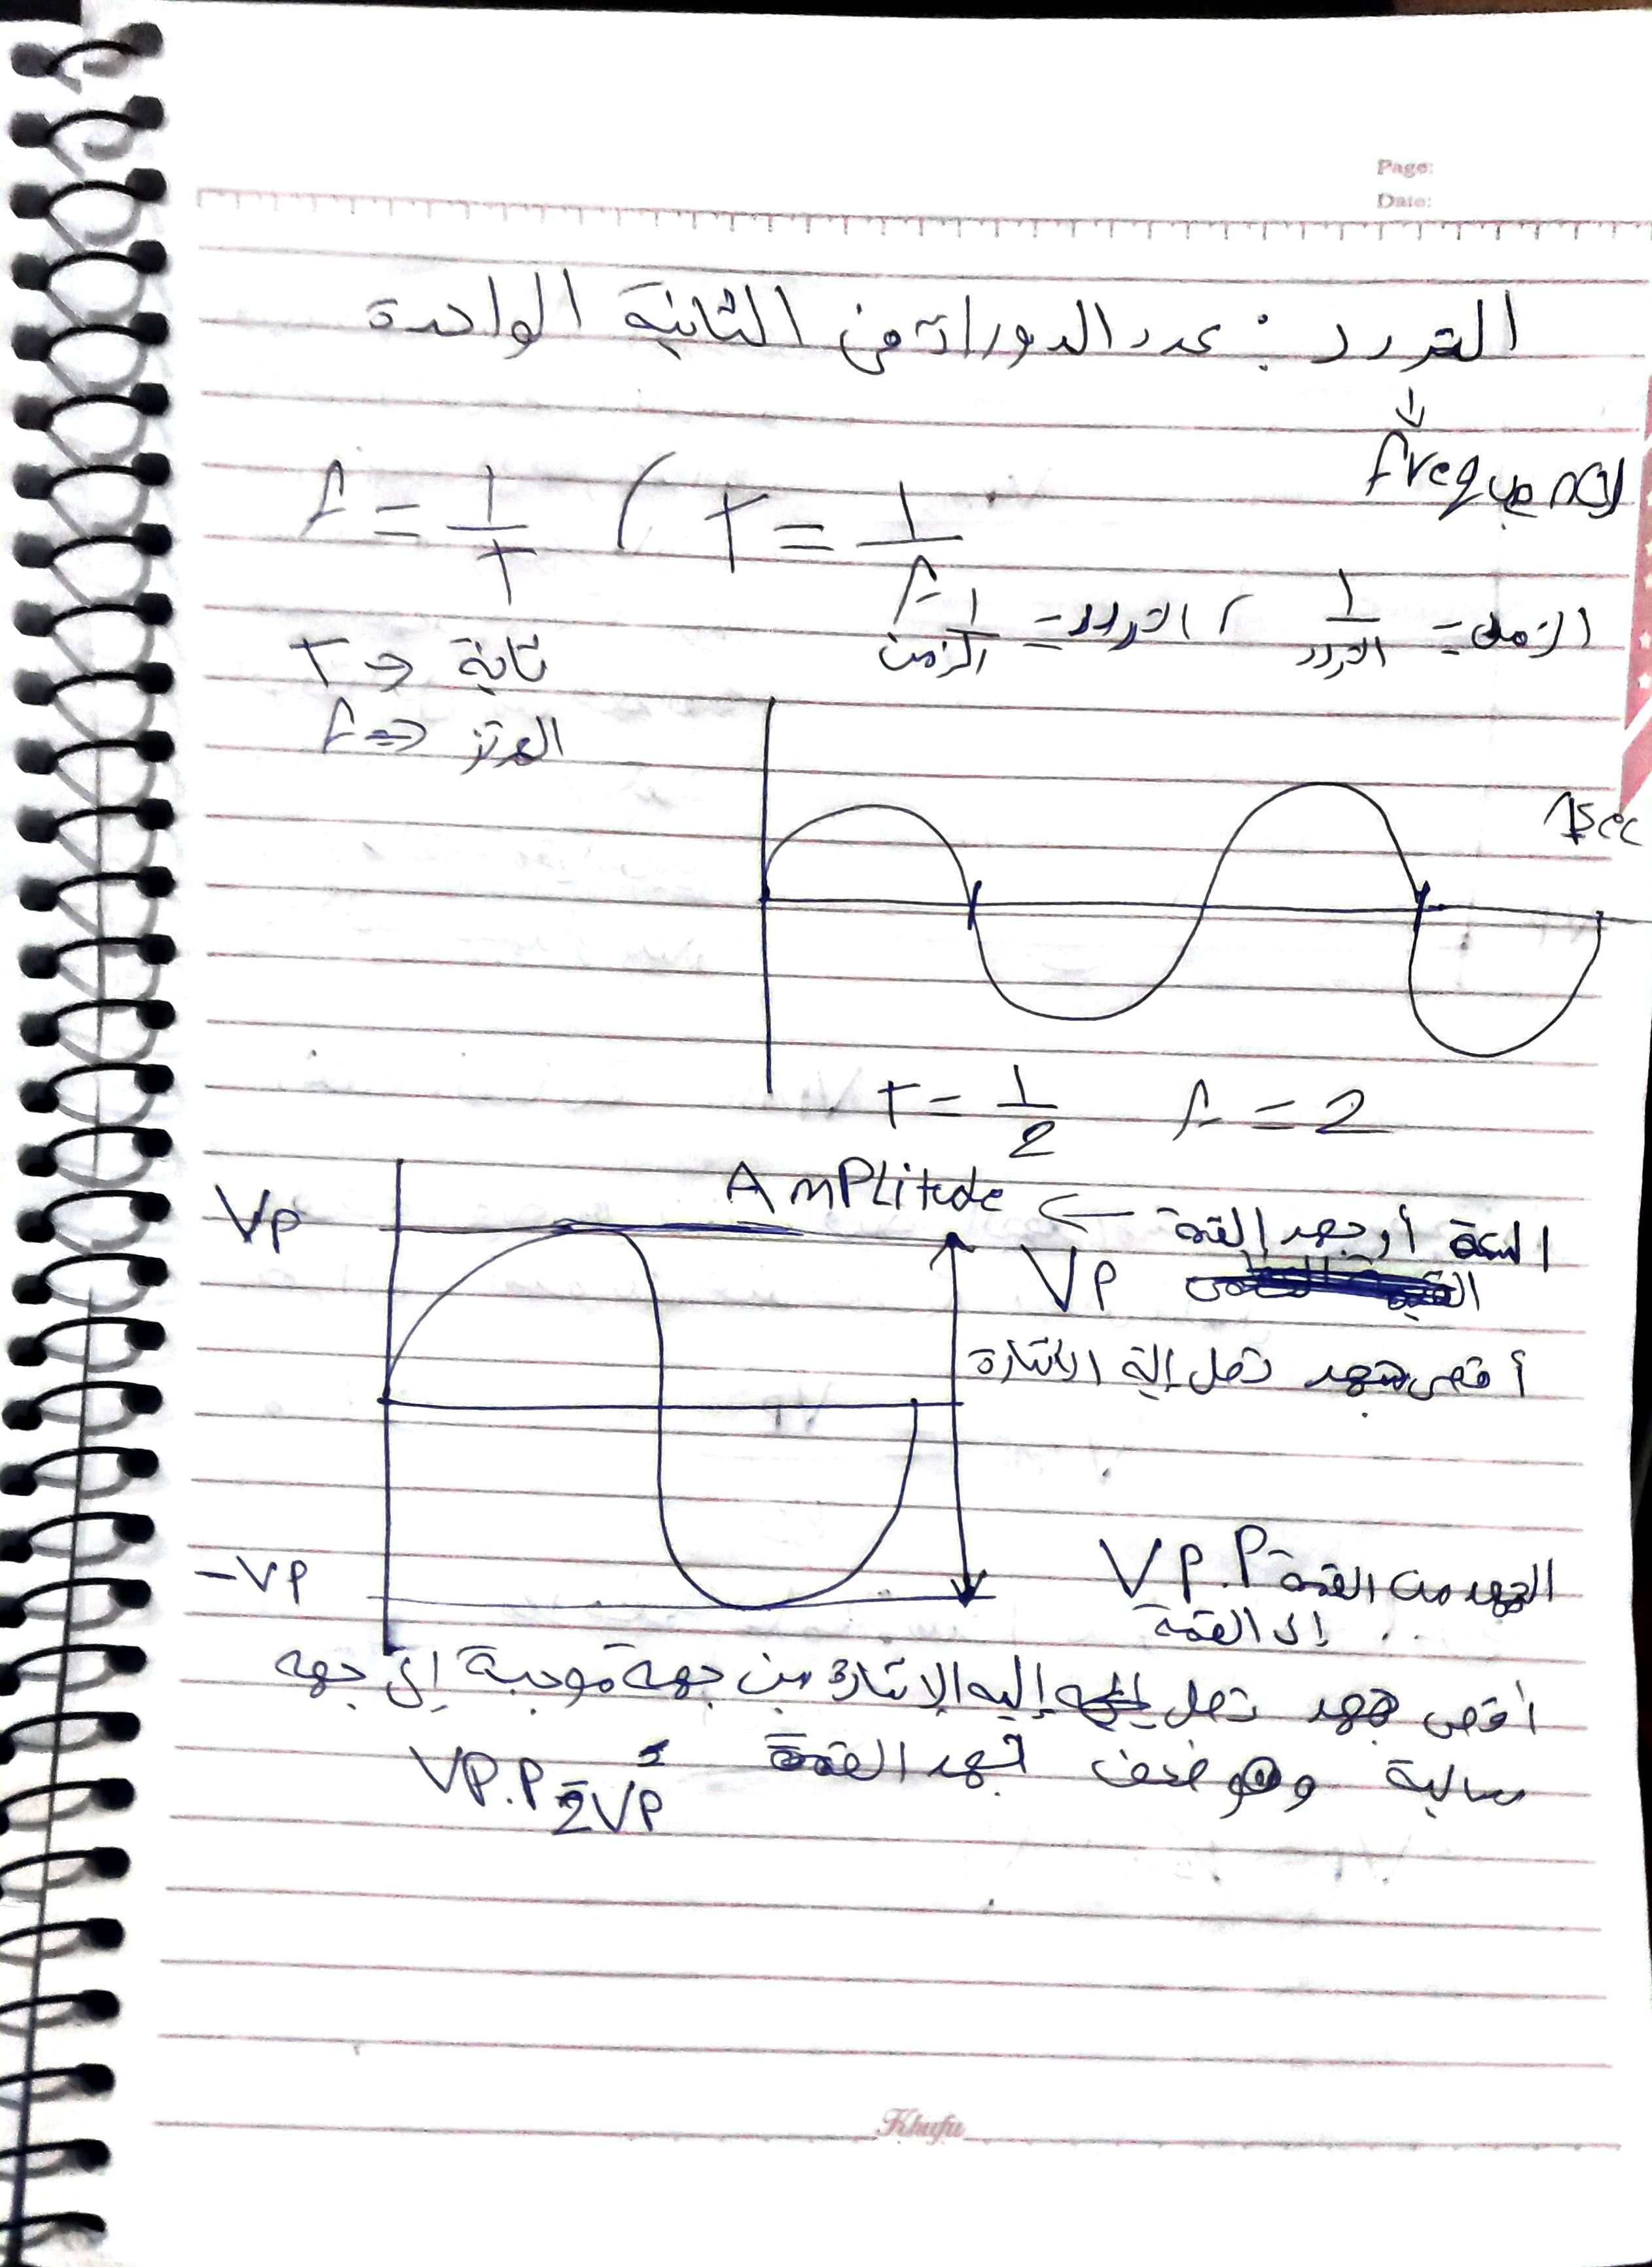 Page:
Date:
التردد : عدد الدورات في الثانية الواحدة
↓
frequency
f = 1/T ( T = 1/f
الزمن = 1/التردد ، التردد = 1/الزمن
ثانية → T
الهرتز → f
1sec
T = 1/2 f = 2
السعة أو جهد القمة → Amplitude
Vp
Vp
أقصى جهد تصل إلية الاشارة
-Vp
الجهد من القمة Vp.p
إلى القمة
أقصى جهد تصل إليه الاشارة من جهة موجبة إلى جهه
سالبة وهو ضعف جهد القمة
VP.P = 2VP
Khufu